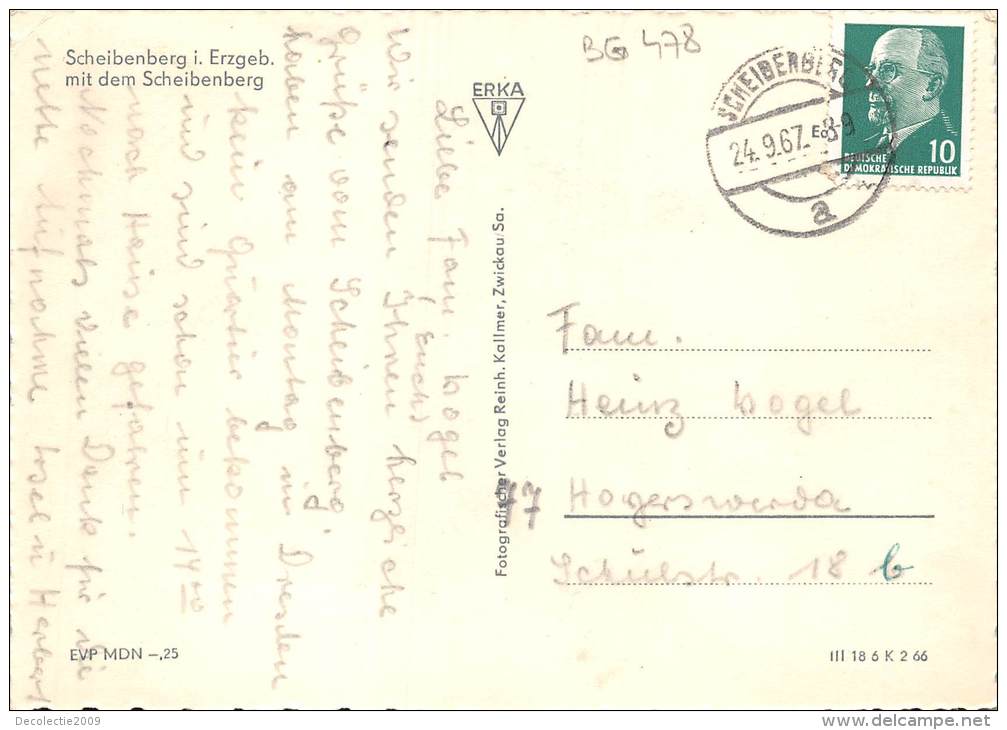 Scheibenberg i. Erzgeb.
mit dem Scheibenberg
BG 478
ERKA
SCHEIBENBERG
24.9.67.-8-9
a
10
DEUTSCHE
DEMOKRATISCHE REPUBLIK
Liebe Fam. Vogel
(Euch)
Wir senden Ihnen herzliche
Grüße von Scheibenberg.
haben am Montag in Dresden
kein Quartier bekommen
und sind schon um 14 00
nach Hause gefahren.
Nochmals vielen Dank für die
nette Aufnahme u Herbert
Fotografischer Verlag Reinh. Kallmer, Zwickau/Sa.
Fam.
Heinz Vogel
77 Hoyerswerda
Schulstr. 18 b
EVP MDN –,25
III 18 6 K 2 66
Decolectie2009
www.delcampe.net